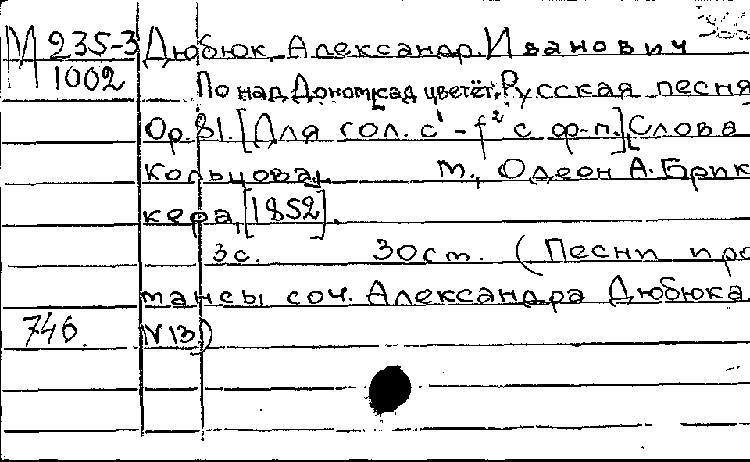 366
М 235-3 Дюбюк, Александр Иванович
1002 По над Доном сад цветёт. Русская песня
Ор. 81. [Для гол. c¹ - f² с ф-п.] [Слова
Кольцова].    М., Одеон А. Брик
кера, [1852].
3 с.    30 ст. (Песни и ро
мансы соч. Александра Дюбюка
746. N 13)